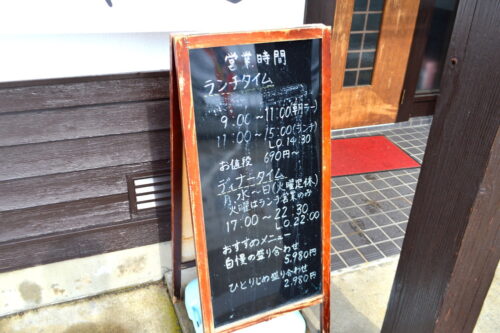 営業時間
ランチタイム
9:00〜11:00(朝ラー)
11:00〜15:00(ランチ)
L.O.14:30
お値段 690円〜
ディナータイム
月、水〜日(火曜定休、
火曜はランチ営業のみ
17:00〜22:30
L.O.22:00
おすすめメニュー
自慢の盛り合わせ
5.980円
ひとりじめ盛り合わせ
2.980円